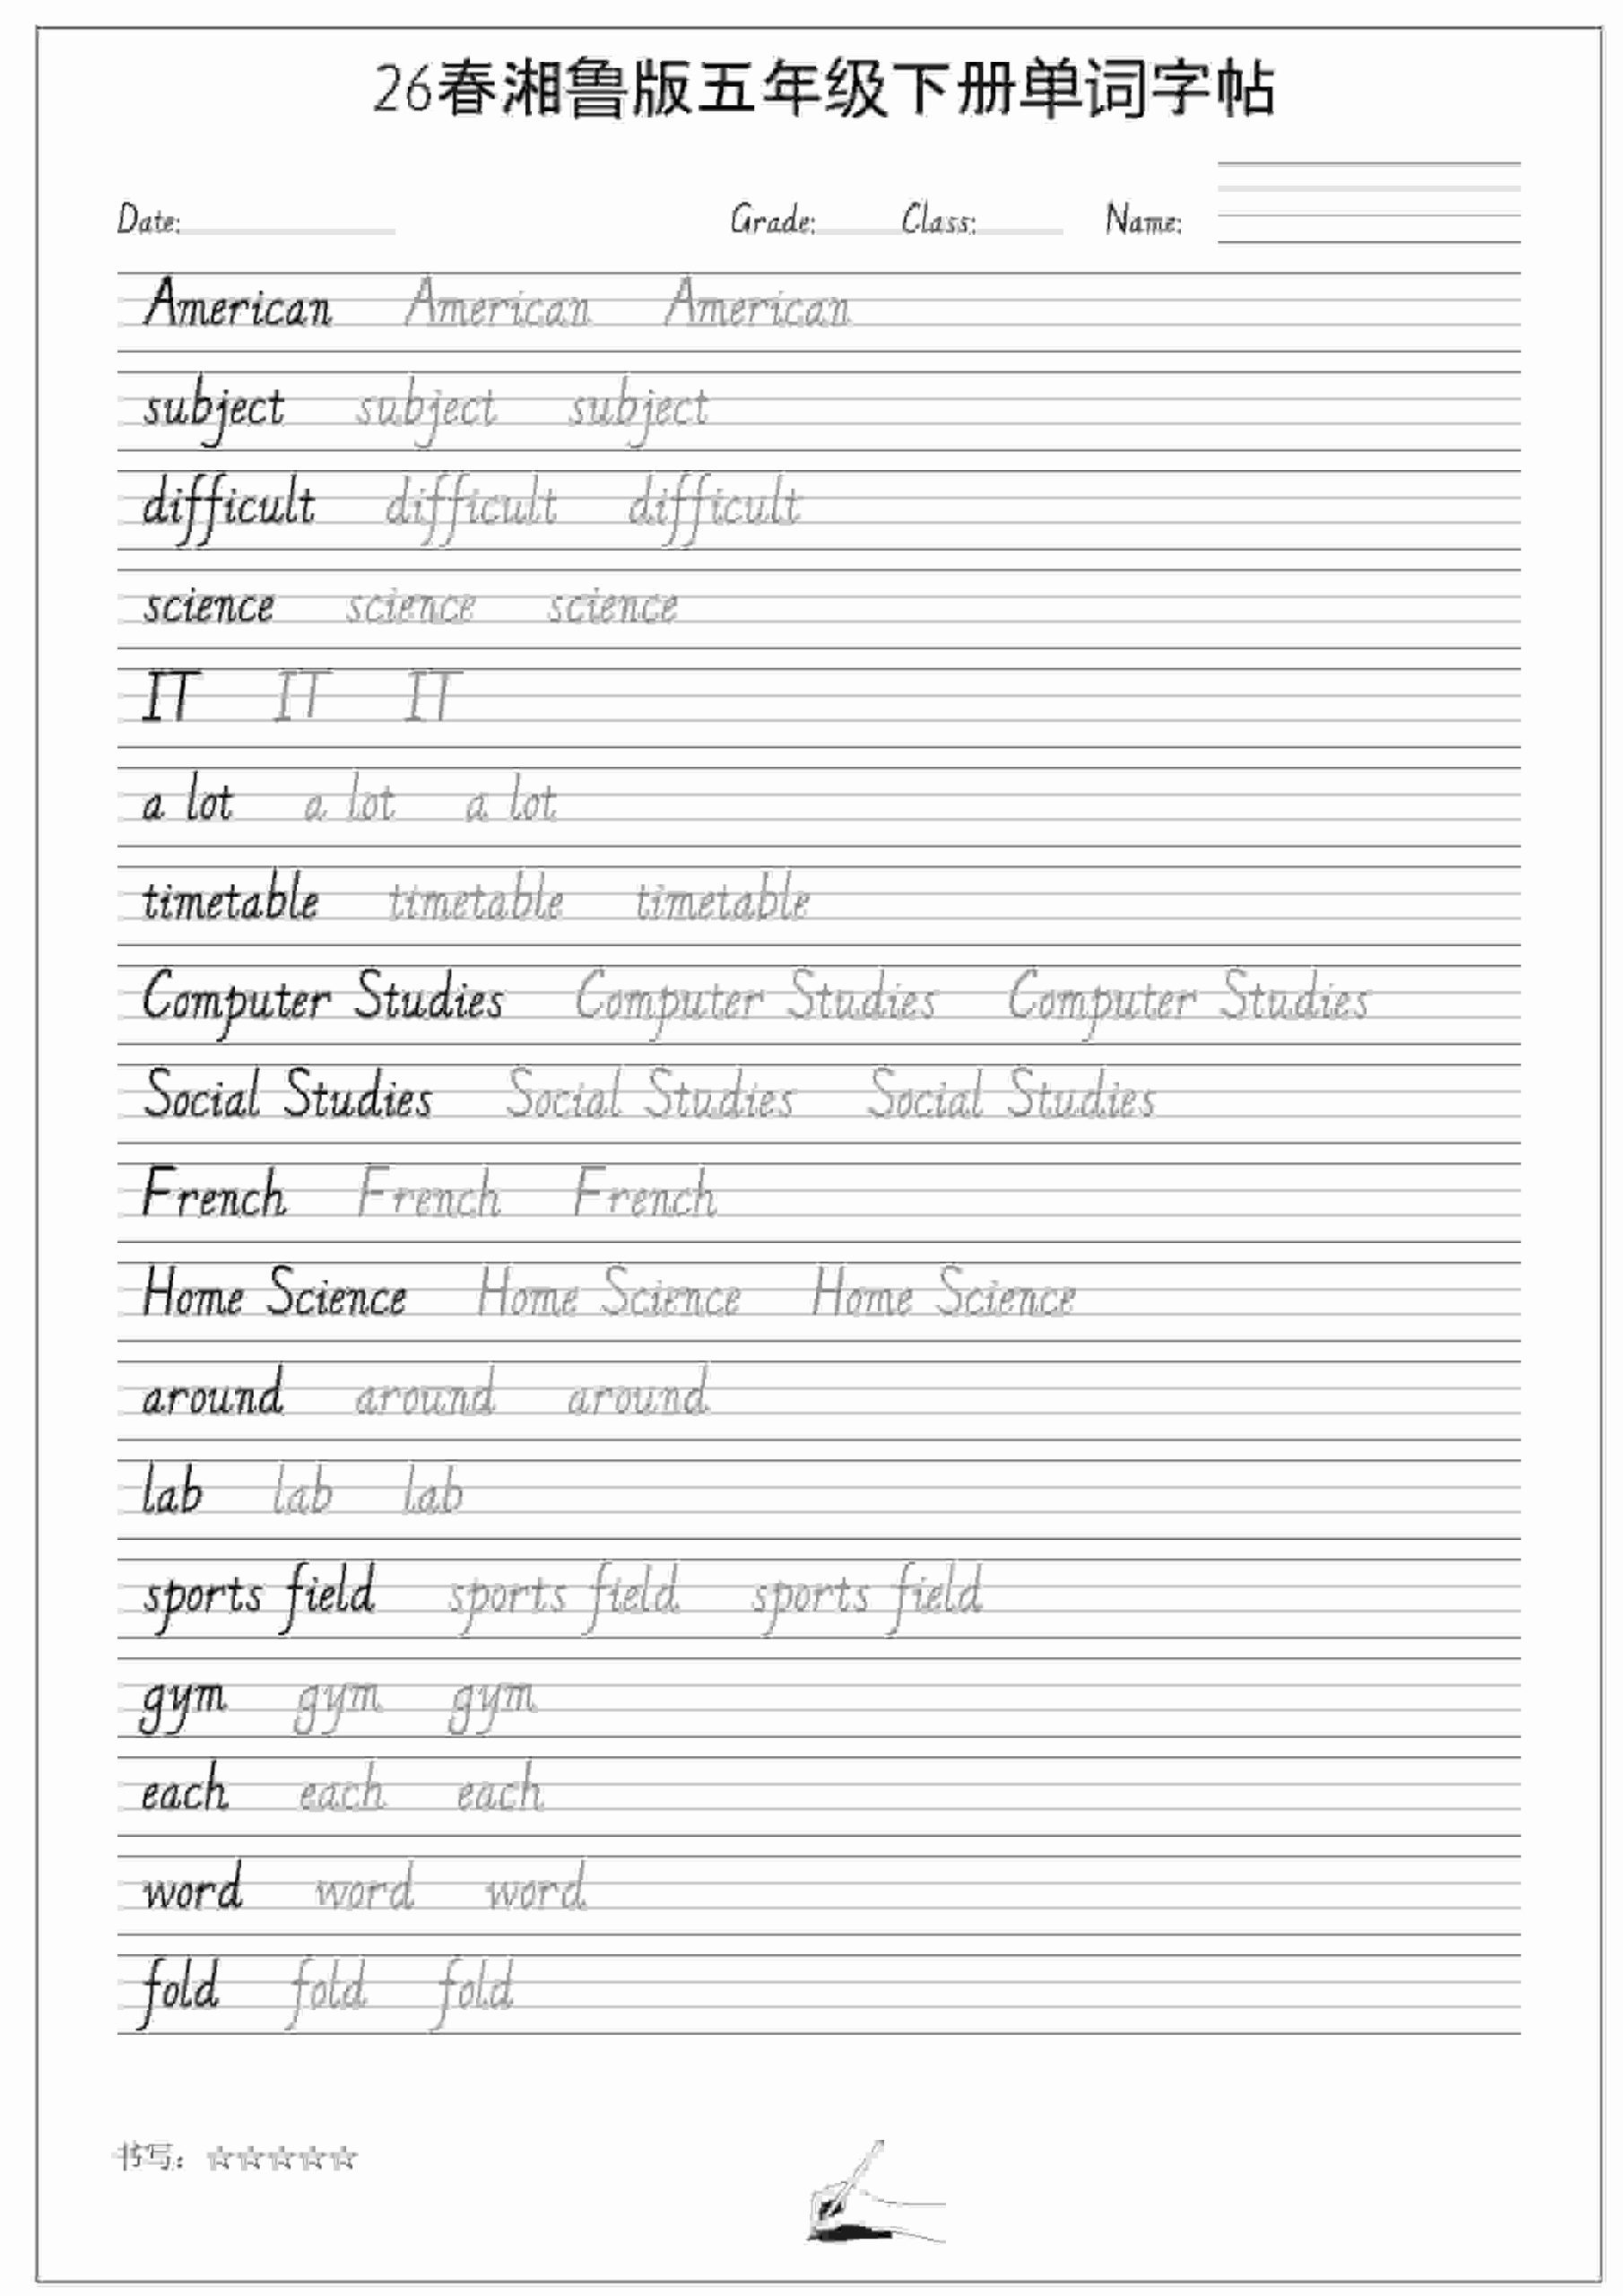 26春湘鲁版五年级下册单词字帖
Date: Grade: Class: Name:
American American American
subject subject subject
difficult difficult difficult
science science science
IT IT IT
a lot a lot a lot
timetable timetable timetable
Computer Studies Computer Studies Computer Studies
Social Studies Social Studies Social Studies
French French French
Home Science Home Science Home Science
around around around
lab lab lab
sports field sports field sports field
gym gym gym
each each each
word word word
fold fold fold
书写：☆☆☆☆☆